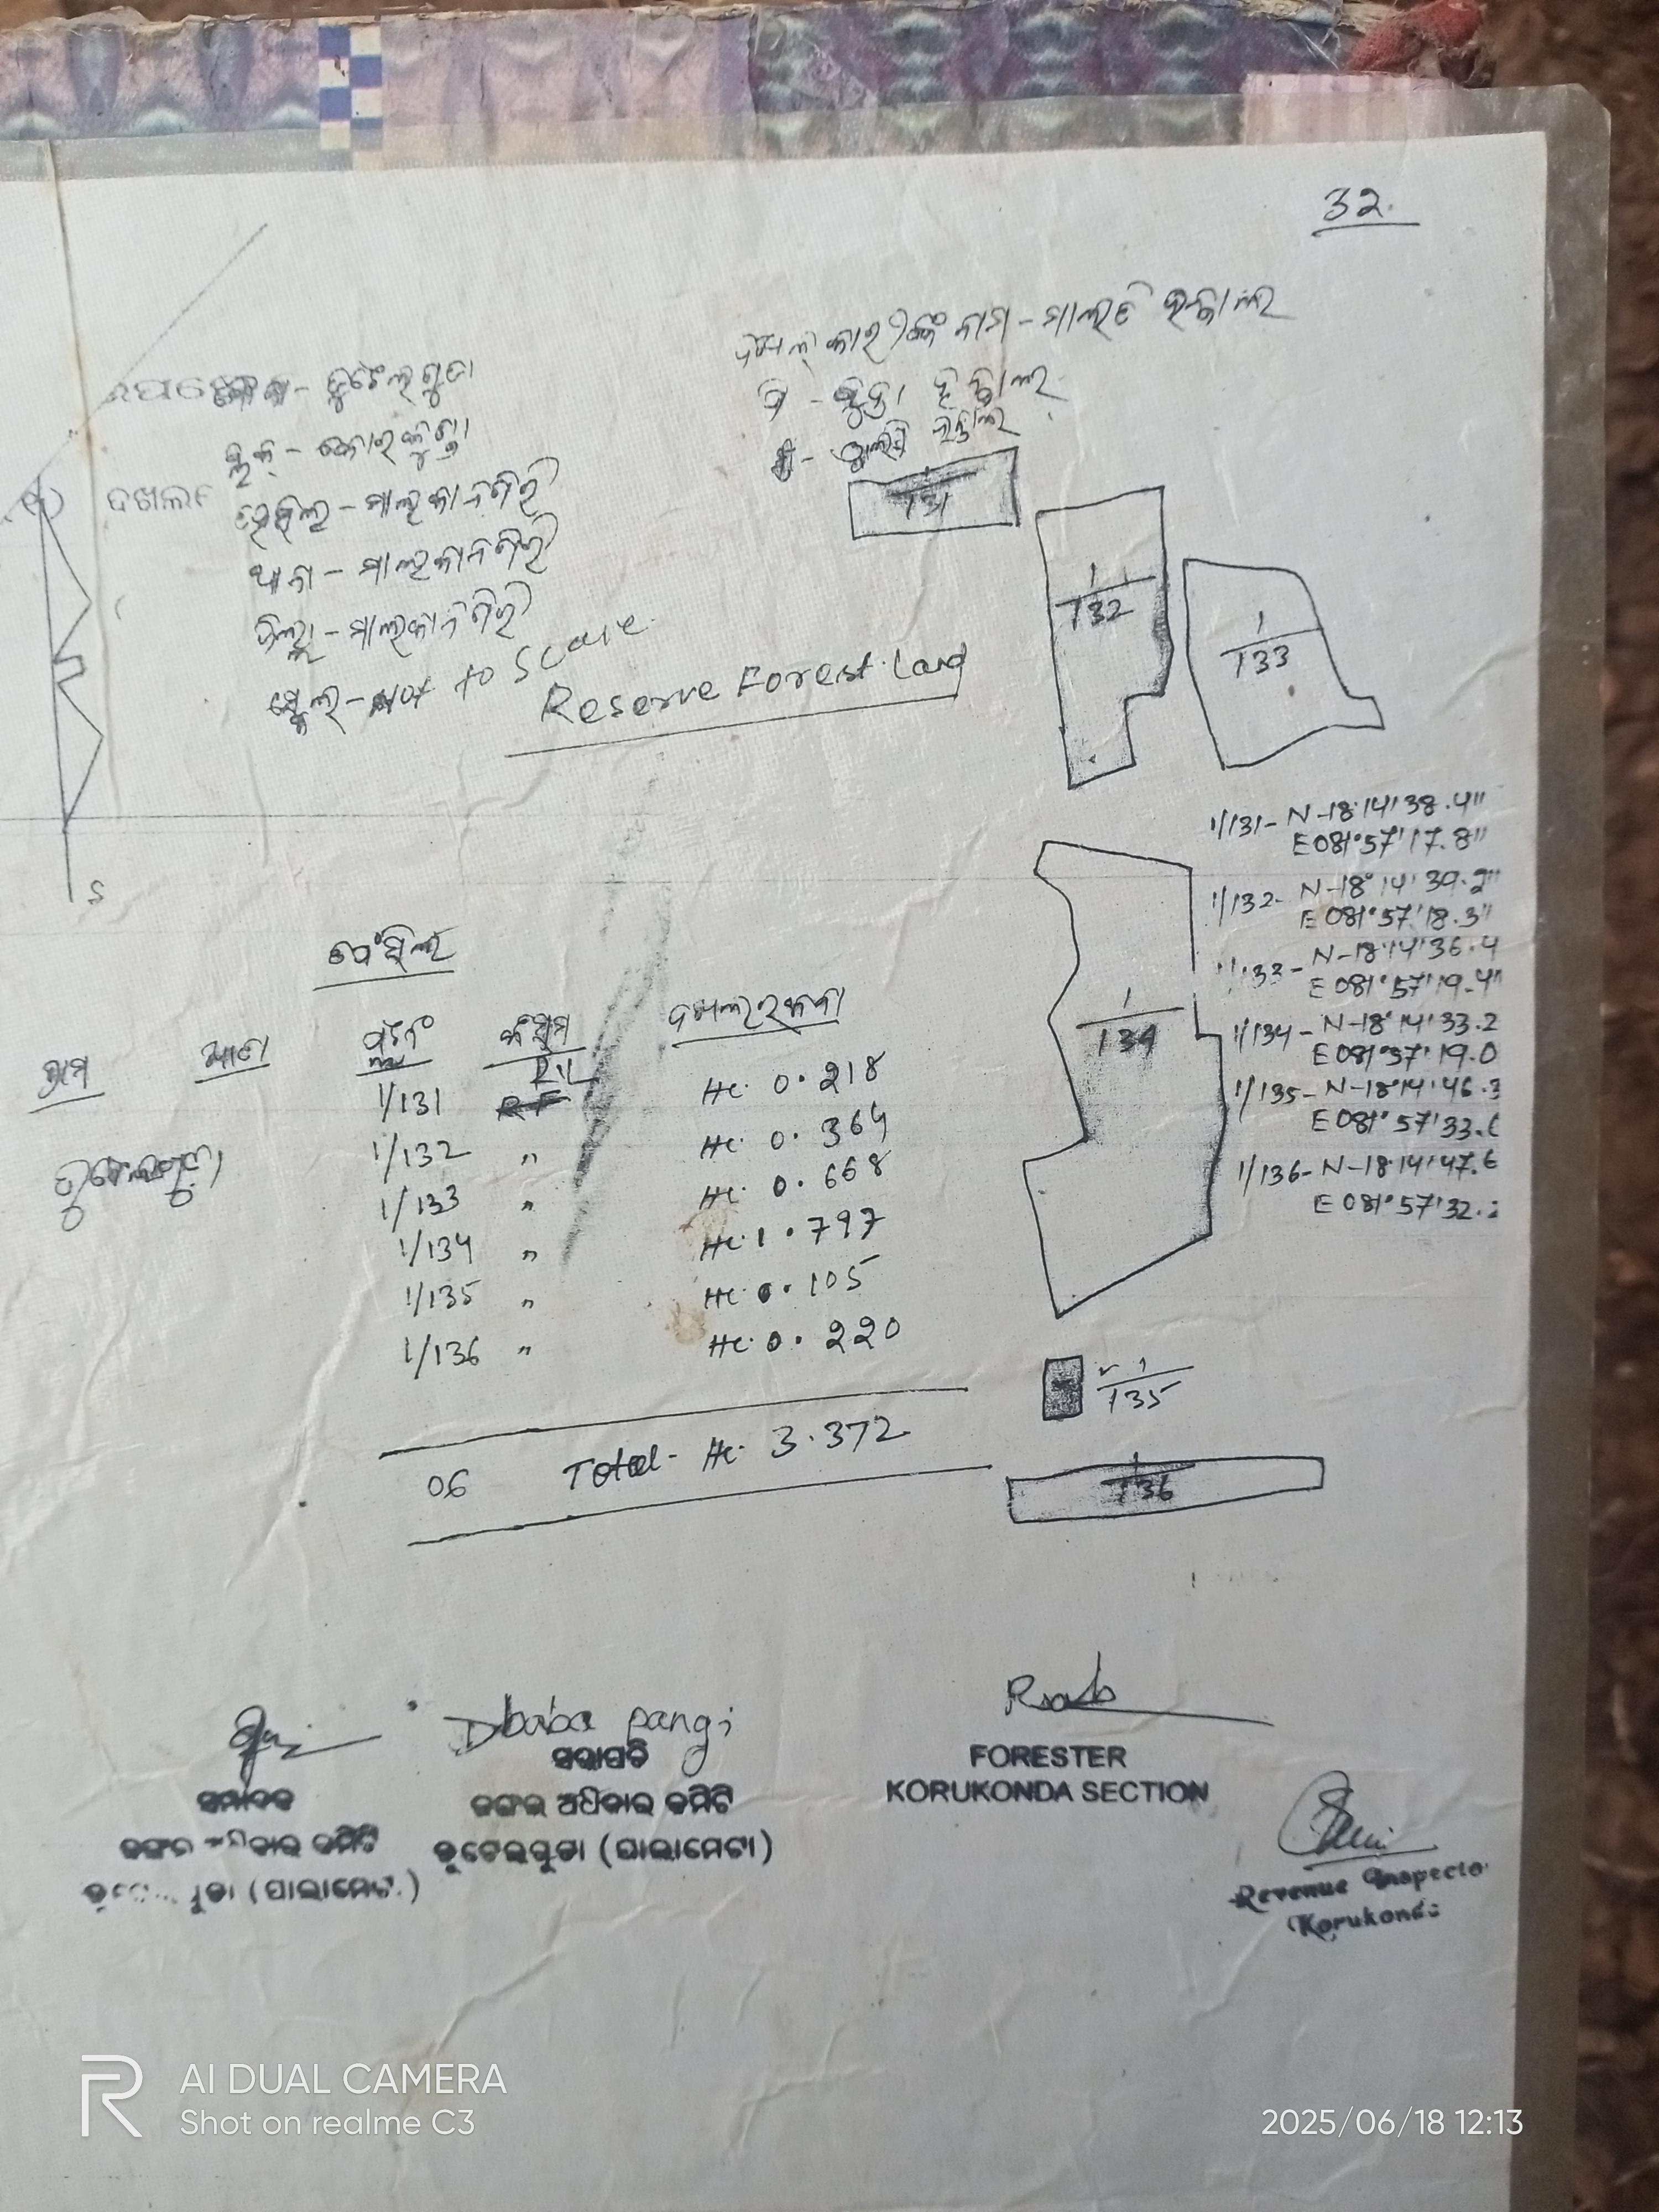 32.
ଦଖଲ୍‌କାରୀଙ୍କ ନାମ - ମାଲତି ହନ୍ତାଲ
ବ୍ଲକ୍ - କୋରୁକୁଣ୍ଡା
ଦଖଲ
ତହସିଲ୍ - ମାଲକାନଗିରି
ଥାନା - ମାଲକାନଗିରି
ଜିଲ୍ଲା - ମାଲକାନଗିରି
ସ୍କେଲ୍ - Not to Scale
Reserve Forest Land
1/131
1/132
1/133
1/131- N-18°14'38.4"
E081°57'17.8"
1/132- N-18°14'39.2"
E081°57'18.3"
1/133- N-18°14'36.4
E081°57'19.4"
1/134- N-18°14'33.2
E081°57'19.0
1/135- N-18°14'46.3
E081°57'33.
1/136- N-18°14'47.6
E081°57'32.
1/134
S
ଗ୍ରାମ ଖାତା ପ୍ଲଟ୍ କିସମ ଦଖଲ ରକବା
1/131 RF Hc. 0.218
1/132 " Hc. 0.364
1/133 " Hc. 0.668
1/134 " Hc. 1.797
1/135 " Hc. 0.105
1/136 " Hc. 0.220
06 Total- Hc. 3.372
1/135
1/136
Dbaba pangi
ସଭାପତି
ଜଙ୍ଗଲ ଅଧିକାର କମିଟି
(ପାଲାମେଟା)
ସମ୍ପାଦକ
ଜଙ୍ଗଲ ଅଧିକାର କମିଟି
FORESTER
KORUKONDA SECTION
Revenue Inspecto
Korukonda
AI DUAL CAMERA
Shot on realme C3
2025/06/18 12:13